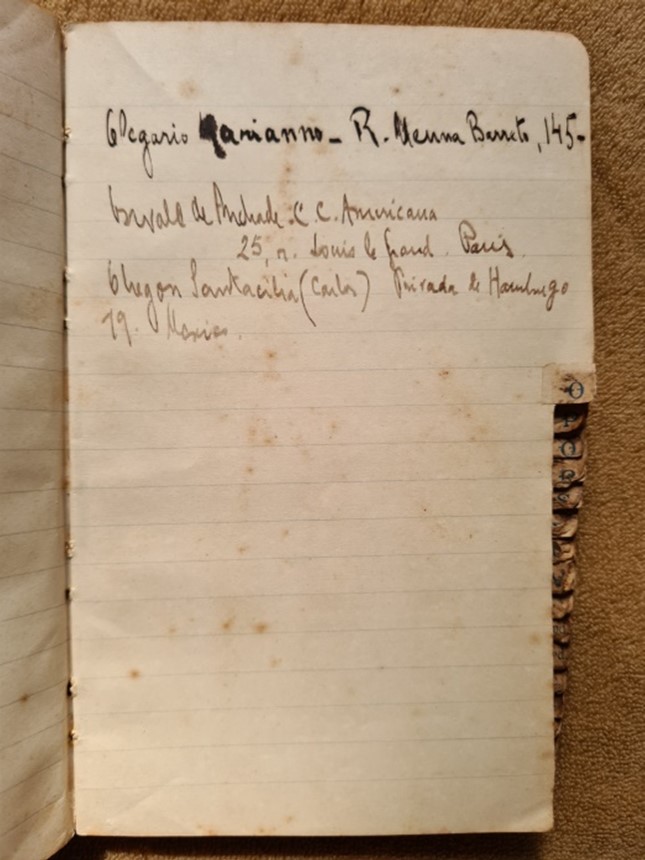 Olegario Marianno - R. Menna Barreto, 145-
Oswald de Andrade. C. C. Americana
25, r. Louis le Grand. Paris.
Obregon Santacilia (Carlos) Privada de Hamburgo
19. Mexico.
O
P
Q
R
S